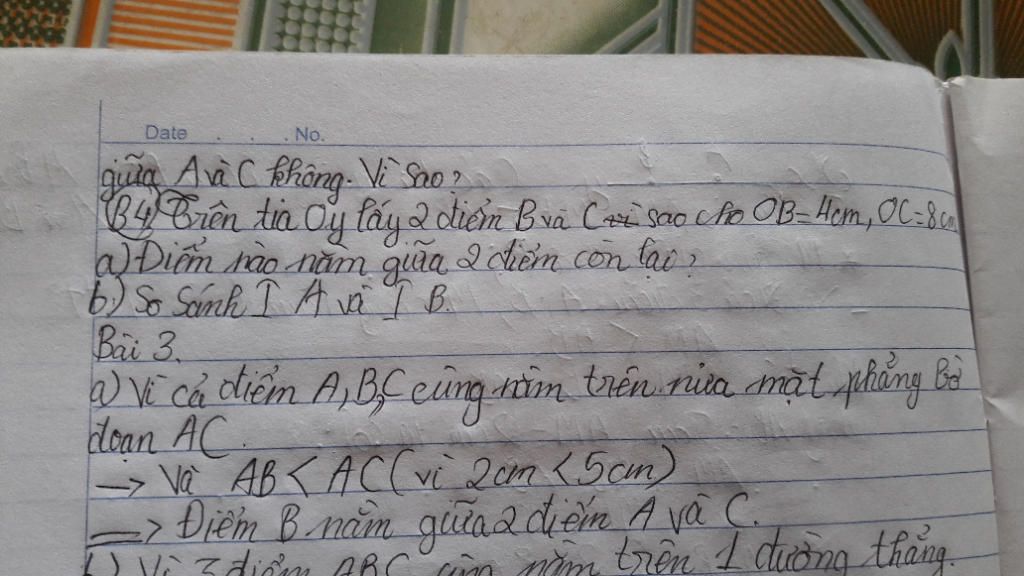 Date . . . No.
giữa A và C không. Vì sao?
B4) Trên tia Oy lấy 2 điểm B và C sao cho OB=4cm, OC=8cm
a) Điểm nào nằm giữa 2 điểm còn lại?
b) So sánh I A và I B.
Bài 3.
a) Vì cả điểm A,B,C cùng nằm trên nửa mặt phẳng Bờ
đoạn AC.
→ Và AB < AC (vì 2cm < 5cm)
⟹ Điểm B nằm giữa 2 điểm A và C.
b) Vì 3 điểm ABC cùng nằm trên 1 đường thẳng.